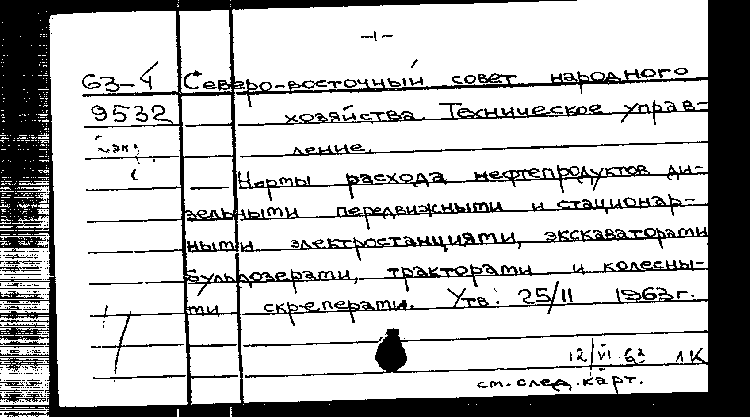 -1-
63-4 Северо-восточный совет народного
9532 хозяйства. Техническое управ-
ление.
Нормы расхода нефтепродуктов ди-
зельными передвижными и стационар-
ными электростанциями, экскаваторами
бульдозерами, тракторами и колесны-
ми скреперами. Утв: 25/II 1963г.
12/VI 63 1К
см. след. карт.